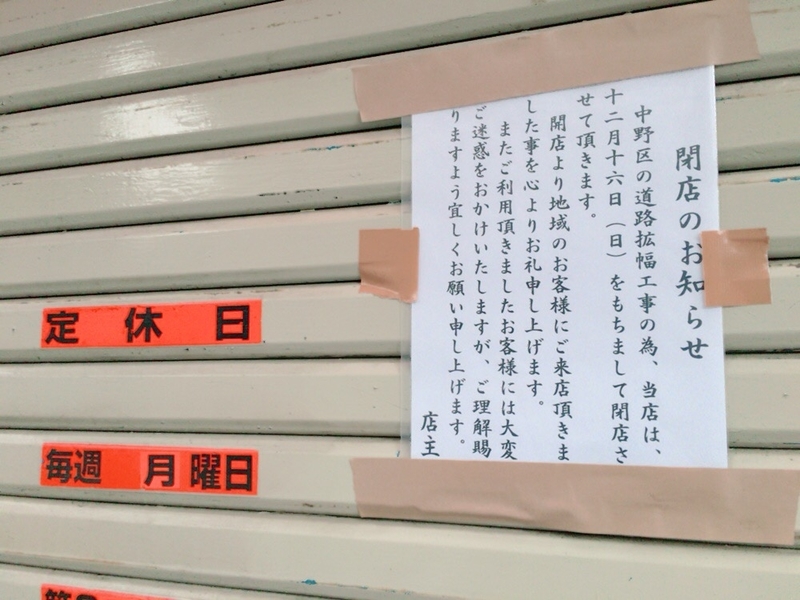 閉店のお知らせ
中野区の道路拡幅工事の為、当店は、
十二月十六日（日）をもちまして閉店さ
せて頂きます。
開店より地域のお客様にご来店頂きま
した事を心よりお礼申し上げます。
またご利用頂きましたお客様には大変
ご迷惑をおかけいたしますが、ご理解賜
りますよう宜しくお願い申し上げます。
店主
定休日
毎週 月曜日